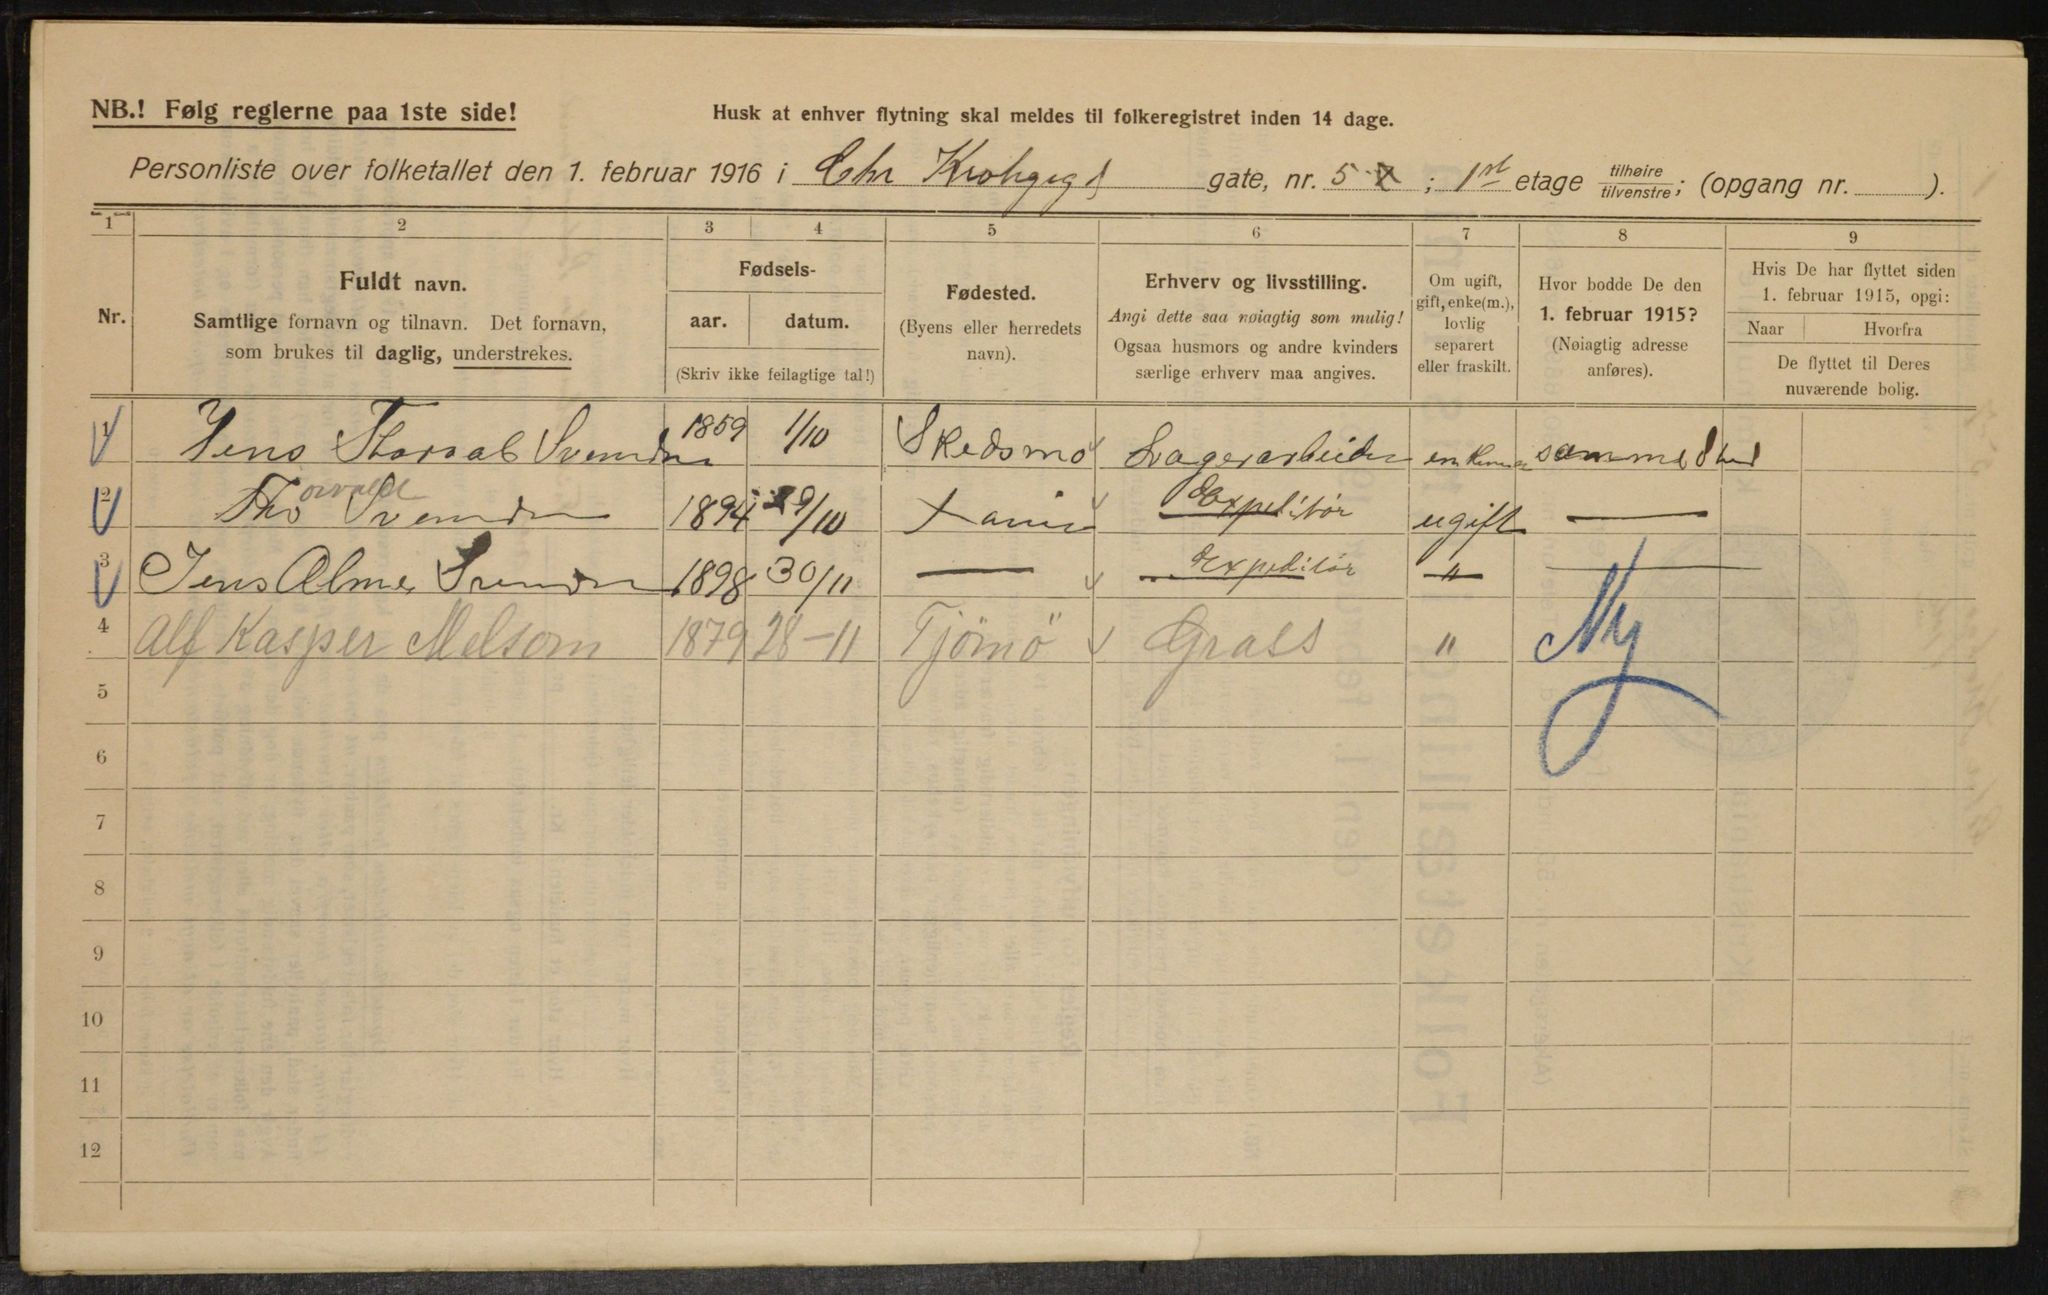 NB.! Følg reglerne paa 1ste side!
Husk at enhver flytning skal meldes til folkeregistret inden 14 dage.
Personliste over folketallet den 1. februar 1916 i Chr Krohgsgd gate, nr. 5 ; 1st etage tilhøire tilvenstre; (opgang nr. ).
1 2 3 4 5 6 7 8 9
Nr.
Fuldt navn.
Samtlige fornavn og tilnavn. Det fornavn,
som brukes til daglig, understrekes.
Fødsels-
aar. datum.
(Skriv ikke feilagtige tal!)
Fødested.
(Byens eller herredets
navn).
Erhverv og livsstilling.
Angi dette saa nøiagtig som mulig!
Ogsaa husmors og andre kvinders
særlige erhverv maa angives.
Om ugift,
gift, enke(m.),
lovlig
separert
eller fraskilt.
Hvor bodde De den
1. februar 1915?
(Nøiagtig adresse
anføres).
Hvis De har flyttet siden
1. februar 1915, opgi:
Naar Hvorfra
De flyttet til Deres
nuværende bolig.
1 Jens Thorvald Svendsen 1859 1/10 Skedsmo Lagerarbeider enkemand sammested
2 Thorvald Svendsen 1894 29/10 Kania Expeditör ugift —
3 Jens Svendsen 1898 30/11 — Expeditör " —
4 Alf Kasper Melsom 1879 28-11 Tjömö Grass " Ny
5
6
7
8
9
10
11
12